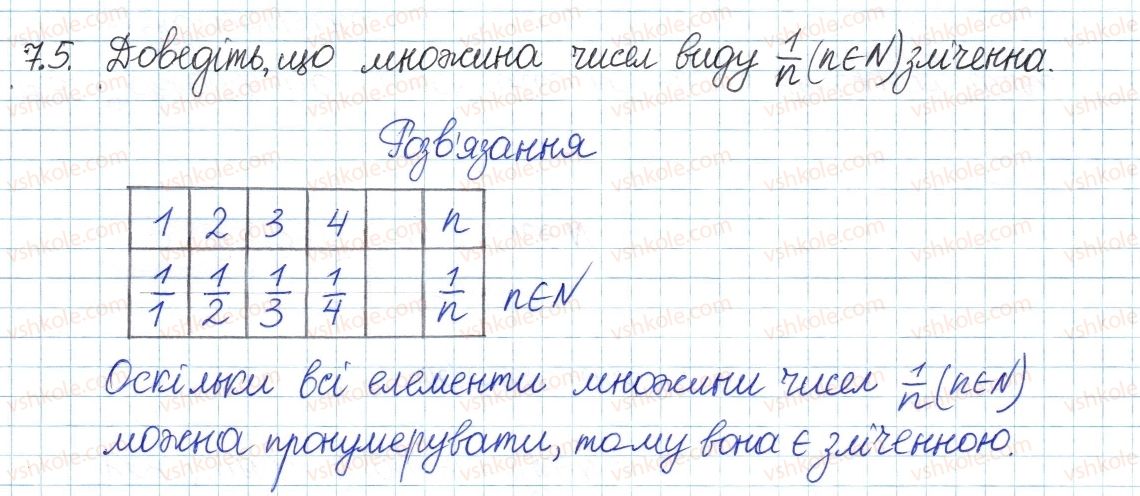 7.5. Доведіть, що множина чисел виду 1/n (n∈N) зліченна.
Розв'язання
1 2 3 4 n
1/1 1/2 1/3 1/4 1/n n∈N
Оскільки всі елементи множини чисел 1/n (n∈N)
можна пронумерувати, тому вона є зліченною.
vshkole.com